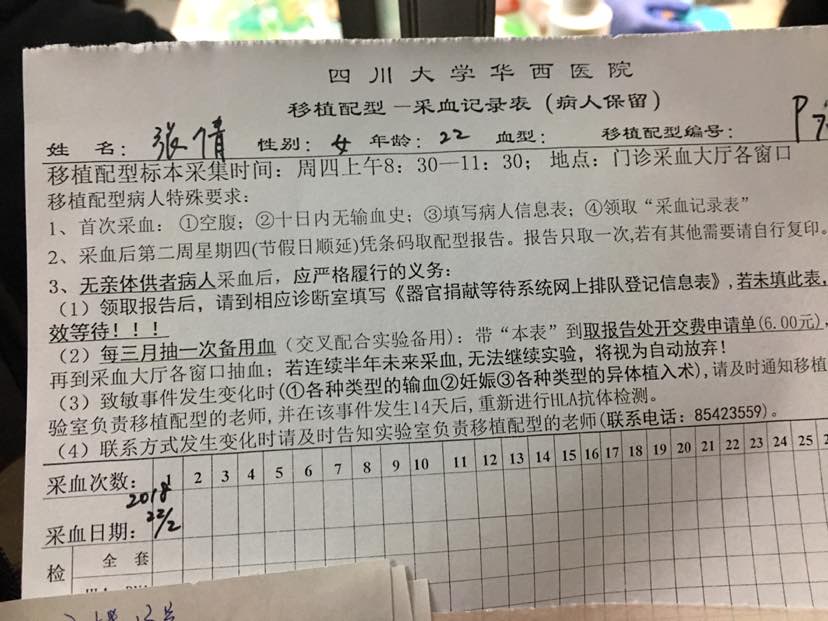 四川大学华西医院
移植配型—采血记录表（病人保留）
姓 名： 张倩 性别：女 年龄：22 血型： 移植配型编号： P
移植配型标本采集时间：周四上午8：30—11：30； 地点：门诊采血大厅各窗口
移植配型病人特殊要求：
1、首次采血：①空腹；②十日内无输血史；③填写病人信息表；④领取“采血记录表”
2、采血后第二周星期四(节假日顺延)凭条码取配型报告。报告只取一次,若有其他需要请自行复印。
3、无亲体供者病人采血后，应严格履行的义务：
（1）领取报告后，请到相应诊断室填写《器官捐献等待系统网上排队登记信息表》,若未填此表,
效等待！！！
（2）每三月抽一次备用血（交叉配合实验备用）：带“本表”到取报告处开交费申请单(6.00元),
再到采血大厅各窗口抽血；若连续半年未来采血,无法继续实验，将视为自动放弃！
（3）致敏事件发生变化时(①各种类型的输血②妊娠③各种类型的异体植入术),请及时通知移植
验室负责移植配型的老师,并在该事件发生14天后,重新进行HLA抗体检测。
（4）联系方式发生变化时请及时告知实验室负责移植配型的老师(联系电话：85423559)。
采血次数： 1 2 3 4 5 6 7 8 9 10 11 12 13 14 15 16 17 18 19 20 21 22 23 24 25
采血日期： 2018 22/2
检 全 套